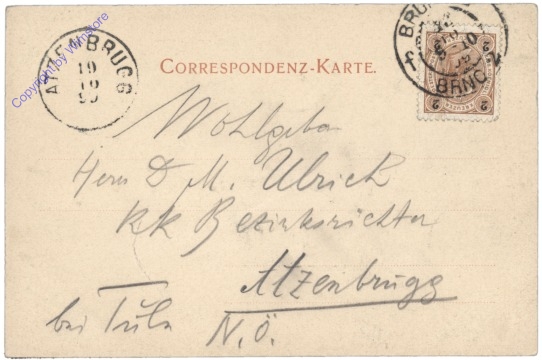 CORRESPONDENZ-KARTE.
ATZENBRUGG
19
10
99
BRÜNN
BRNO
2
2
Copyright by Wlmstore
Wohlgebor
Herrn D M. Ulrich
kk Bezirksrichter
Atzenbrugg
bei Tulln N.Ö.